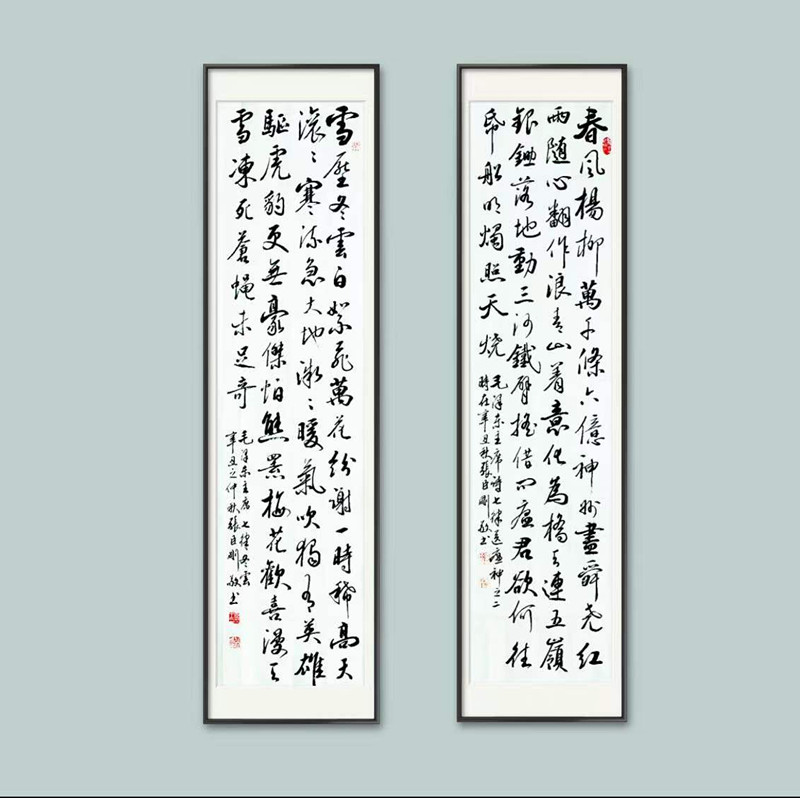 春风楊柳萬千條六億神州盡舜尧红
雨随心翻作浪青山着意化為橋天連五嶺
銀鋤落地動三河鐵臂搖借问瘟君欲何往
帋船明燭照天烧
毛泽东主席詩七律送瘟神之二
時在辛丑秋張臣剛敬书
雪壓冬雲白絮飛萬花紛謝一時稀高天
滚〻寒流急大地微〻暖氣吹獨有英雄
驅虎豹更無豪傑怕熊羆梅花歡喜漫天
雪凍死蒼蝇未足奇
毛泽东主席七律冬雲
辛丑之仲秋張臣剛敬书